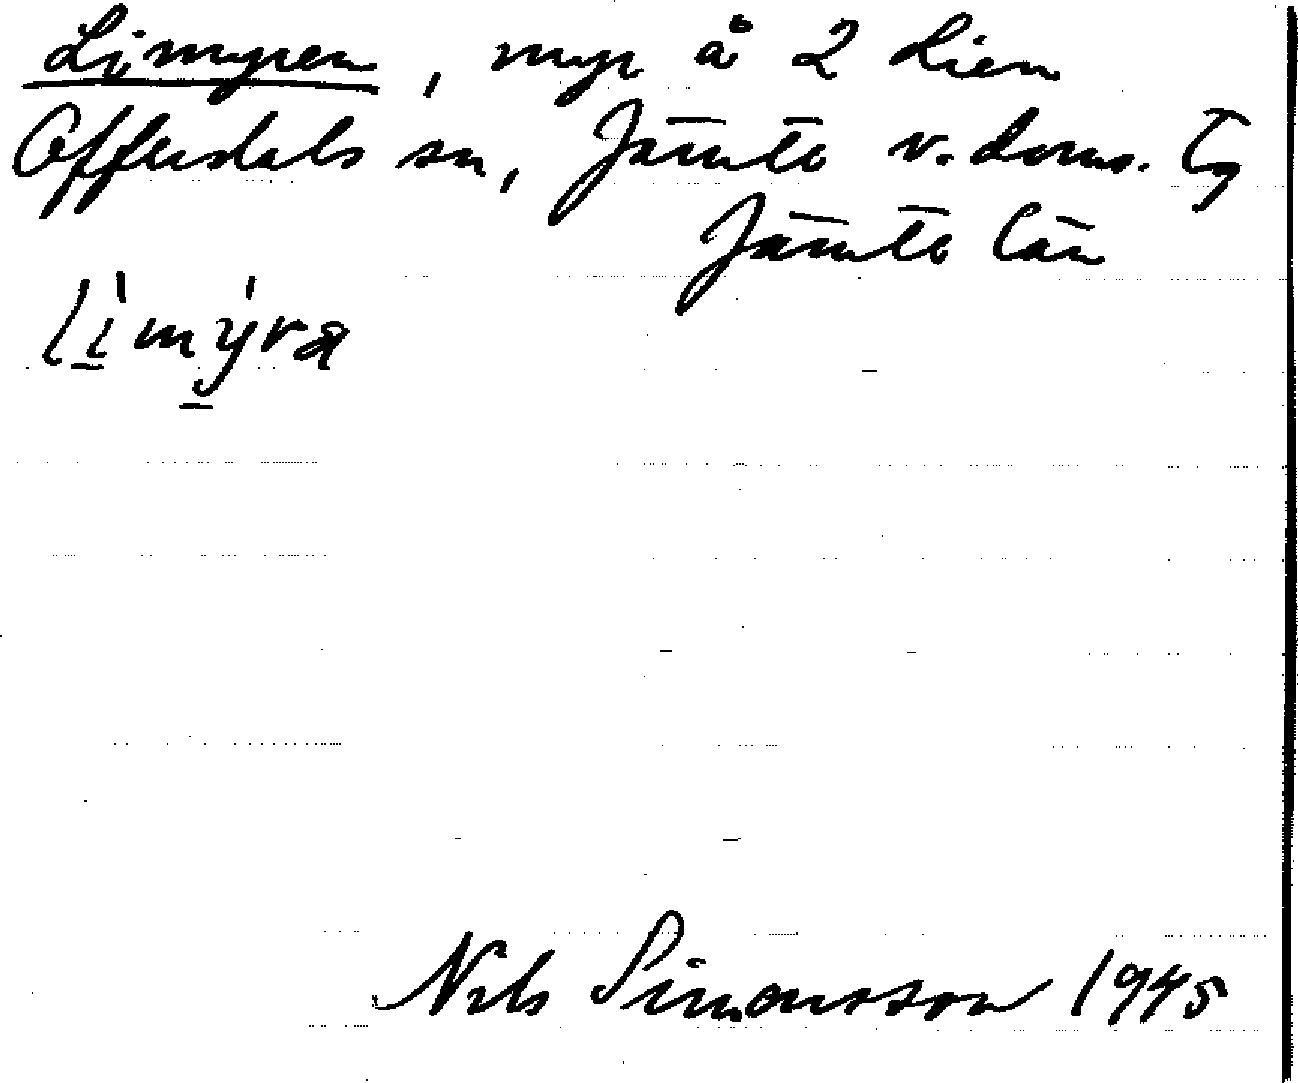 Limyren, myr å 2 Lien
Offerdals sn, Jämtl v. doms. Tg
Jämtl län
lìmýra
Nils Simonsson 1945